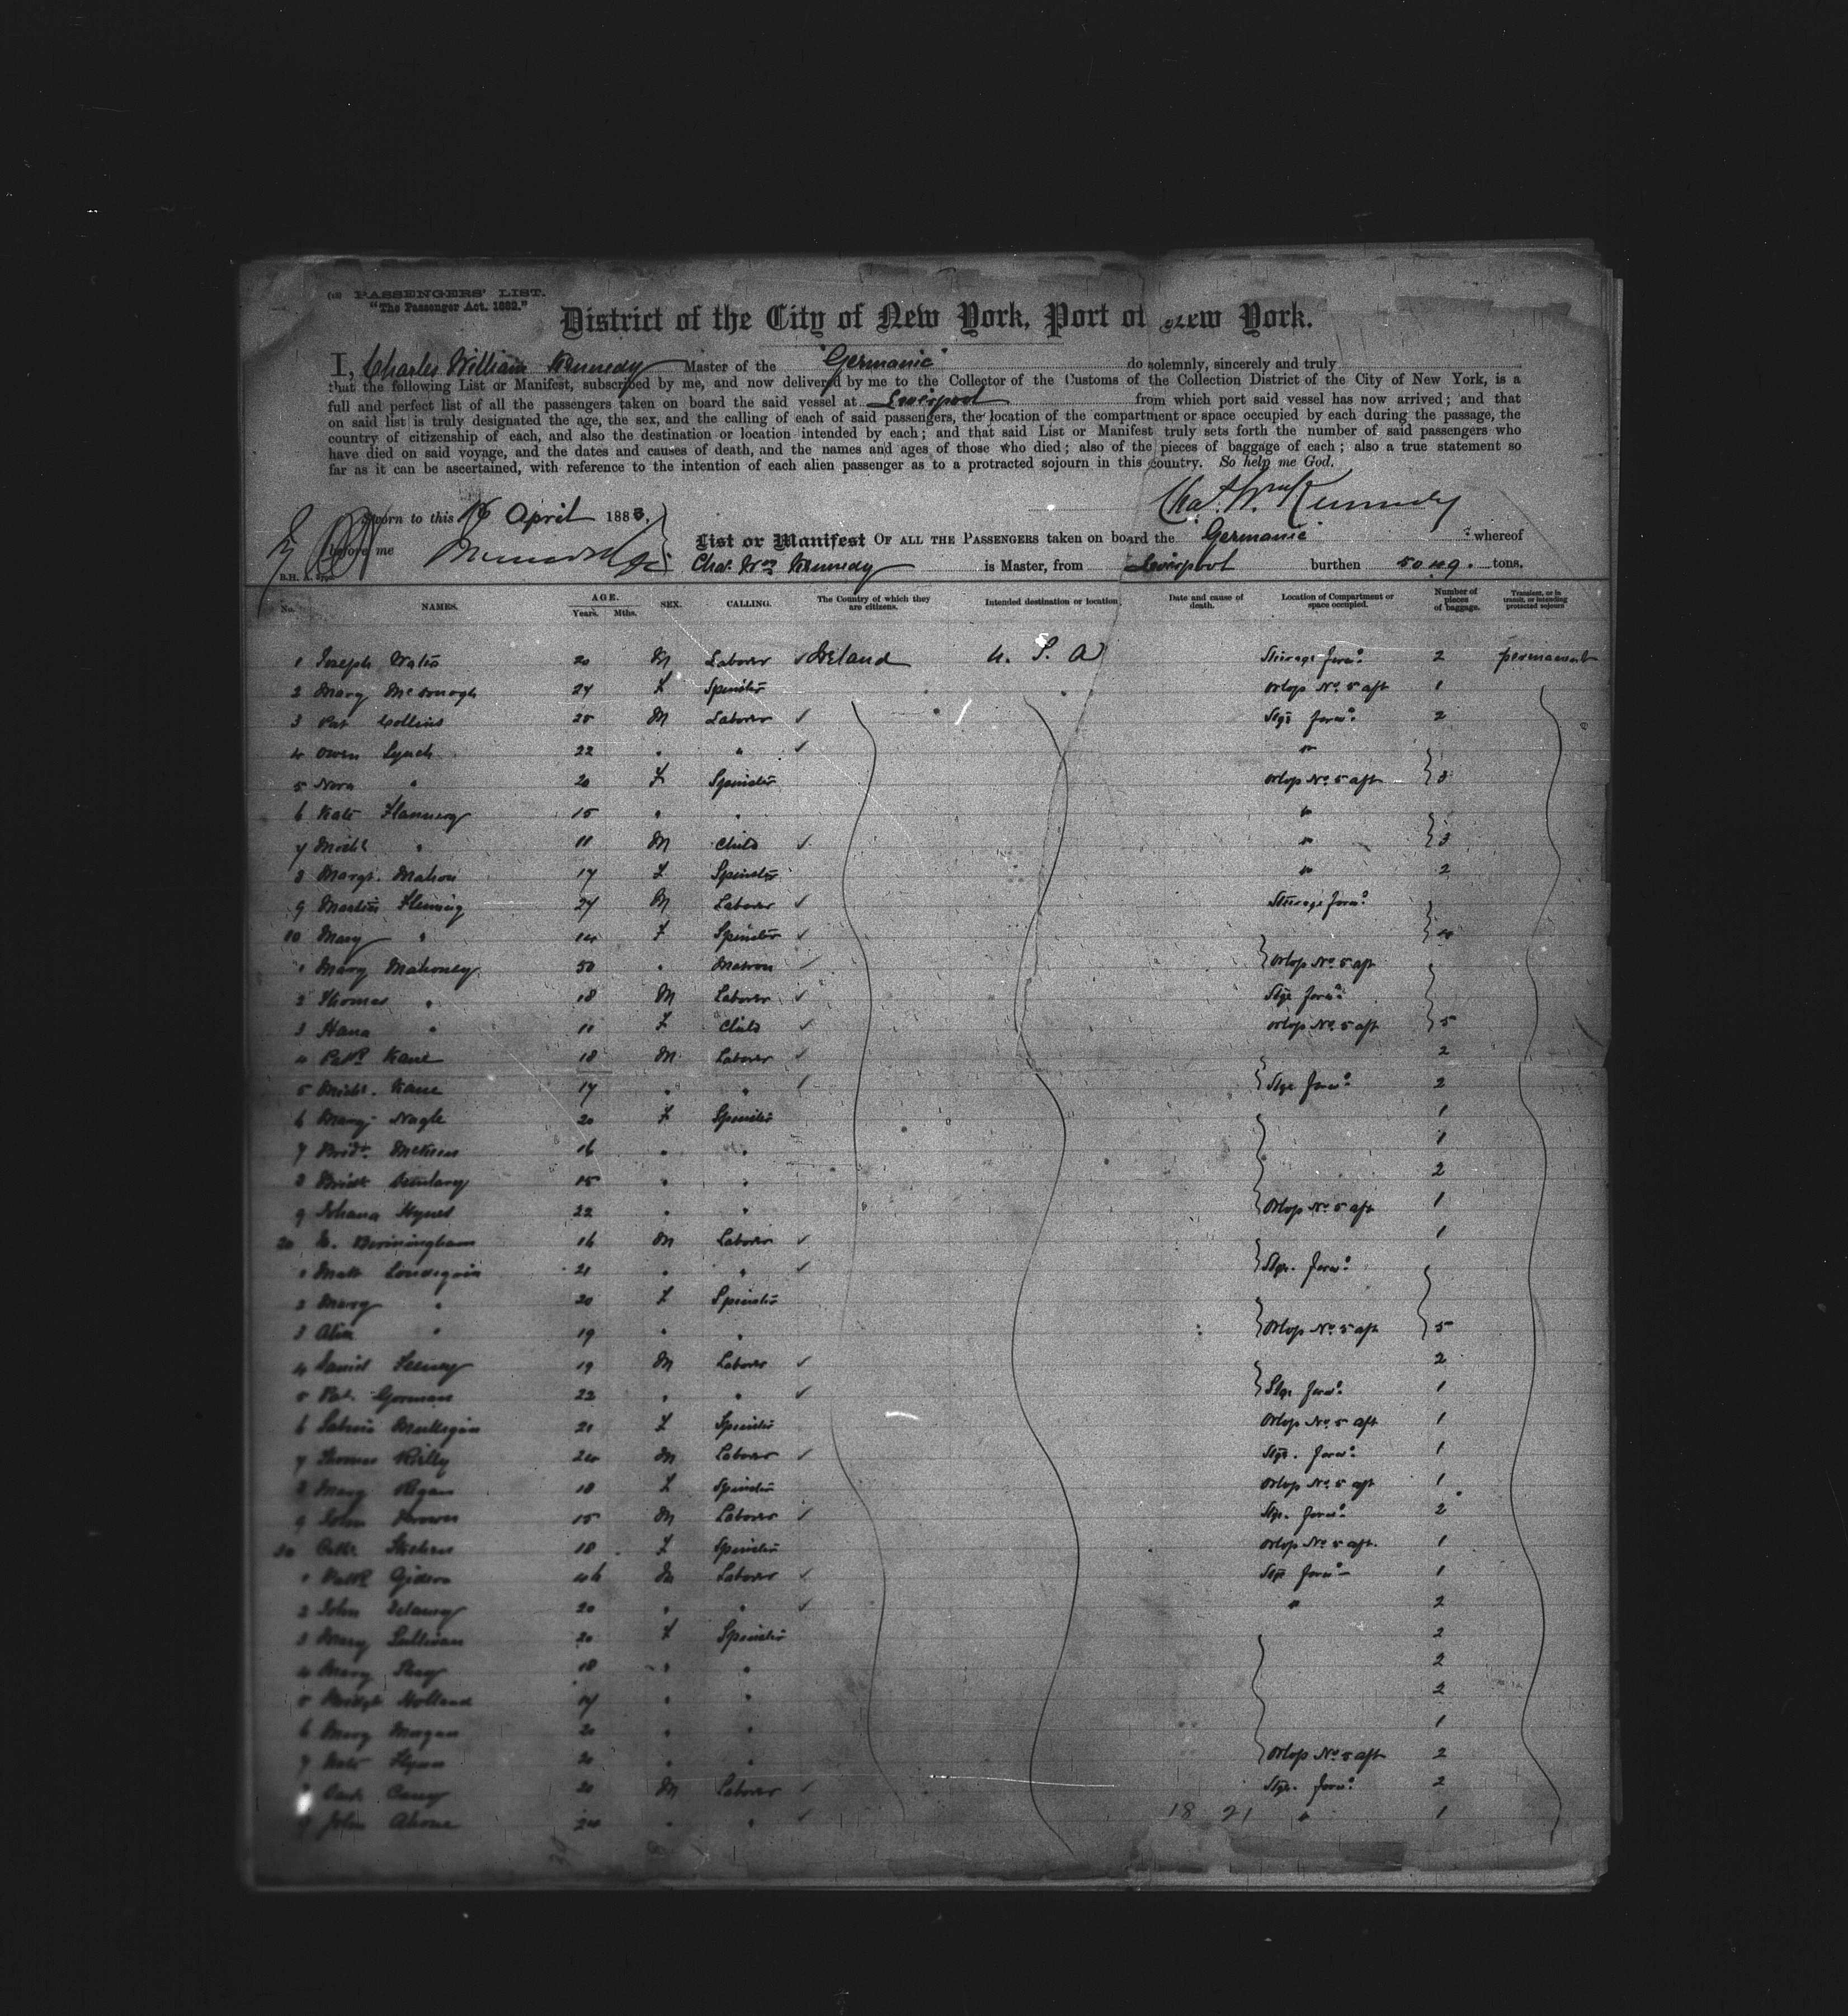 (13) PASSENGERS' LIST.
"The Passenger Act, 1882."
District of the City of New York, Port of New York.
I, Charles William Kennedy Master of the "Germanic" do solemnly, sincerely and truly
that the following List or Manifest, subscribed by me, and now delivered by me to the Collector of the Customs of the Collection District of the City of New York, is a
full and perfect list of all the passengers taken on board the said vessel at Liverpool from which port said vessel has now arrived; and that
on said list is truly designated the age, the sex, and the calling of each of said passengers, the location of the compartment or space occupied by each during the passage, the
country of citizenship of each, and also the destination or location intended by each; and that said List or Manifest truly sets forth the number of said passengers who
have died on said voyage, and the dates and causes of death, and the names and ages of those who died; also of the pieces of baggage of each; also a true statement so
far as it can be ascertained, with reference to the intention of each alien passenger as to a protracted sojourn in this country. So help me God.
Chas. Wm Kennedy
Sworn to this 16 April 1883.
before me
List or Manifest OF ALL THE PASSENGERS taken on board the Germanic whereof
Chas. Wm Kennedy is Master, from Liverpool burthen 5049. tons.
No. NAMES. AGE. Years. Mths. SEX. CALLING. The Country of which they are citizens. Intended destination or location. Date and cause of death. Location of Compartment or space occupied. Number of pieces of baggage. Transient, or in transit, or intending protracted sojourn
1 Joseph 20 M Laborer Ireland U. S. A Steerage forwd. 2 permanent
2 Mary McDonagh 24 F Spinster Orlop No. 5 aft 1
3 Pat Collins 25 M Laborer Stge forwd. 2
4 Owen Lynch 22 " " "
5 Nora " 20 F Spinster Orlop No. 5 aft 3
6 Kate Flannery 15 " " "
7 Michl " 11 M Child " 3
8 Margt. Mahon 17 F Spinster " 2
9 Martin Fleming 27 M Laborer Steerage forwd.
10 Mary " 14 F Spinster 4
1 Mary Mahoney 50 " Matron Orlop No. 5 aft
2 Thomas " 18 M Laborer Stge forwd.
3 Hana " 11 F Child Orlop No. 5 aft 5
4 Patk. Kane 18 M Laborer 2
5 Michl. Kane 17 " " Stge forwd. 2
6 Mary Nagle 20 F Spinster 1
7 Bridt. 16 " " 1
8 Bridt 15 " " 2
9 Johana Hynes 22 " " Orlop No. 5 aft 1
20 Birmingham 16 M Laborer 1
1 Matt 21 " " Stge. forwd.
2 Mary " 20 F Spinster
3 " 19 " " Orlop No. 5 aft 5
4 Daniel 19 M Laborer 2
5 Pat. Gorman 22 " " Stge forwd. 1
6 Mulligan 21 F Spinster Orlop No. 5 aft 1
7 Thomas Reilly 24 M Laborer Stge. forwd. 1
8 Mary Regan 18 F Spinster Orlop No. 5 aft 1
9 John 15 M Laborer Stge. forwd. 2
30 18 F Spinster Orlop No. 5 aft. 1
1 Patk. 46 M Laborer Stge forwd. 1
2 John Delaney 20 " " " 2
3 Mary Sullivan 20 F Spinster 2
4 Mary 18 " " 2
5 Bridgt Holland 17 " " 2
6 Mary Morgan 20 " " 1
7 Kate Flynn 20 " " Orlop No. 5 aft 2
Carey 20 M Laborer Stge. forwd. 2
9 John 24 " " " 1
18 21